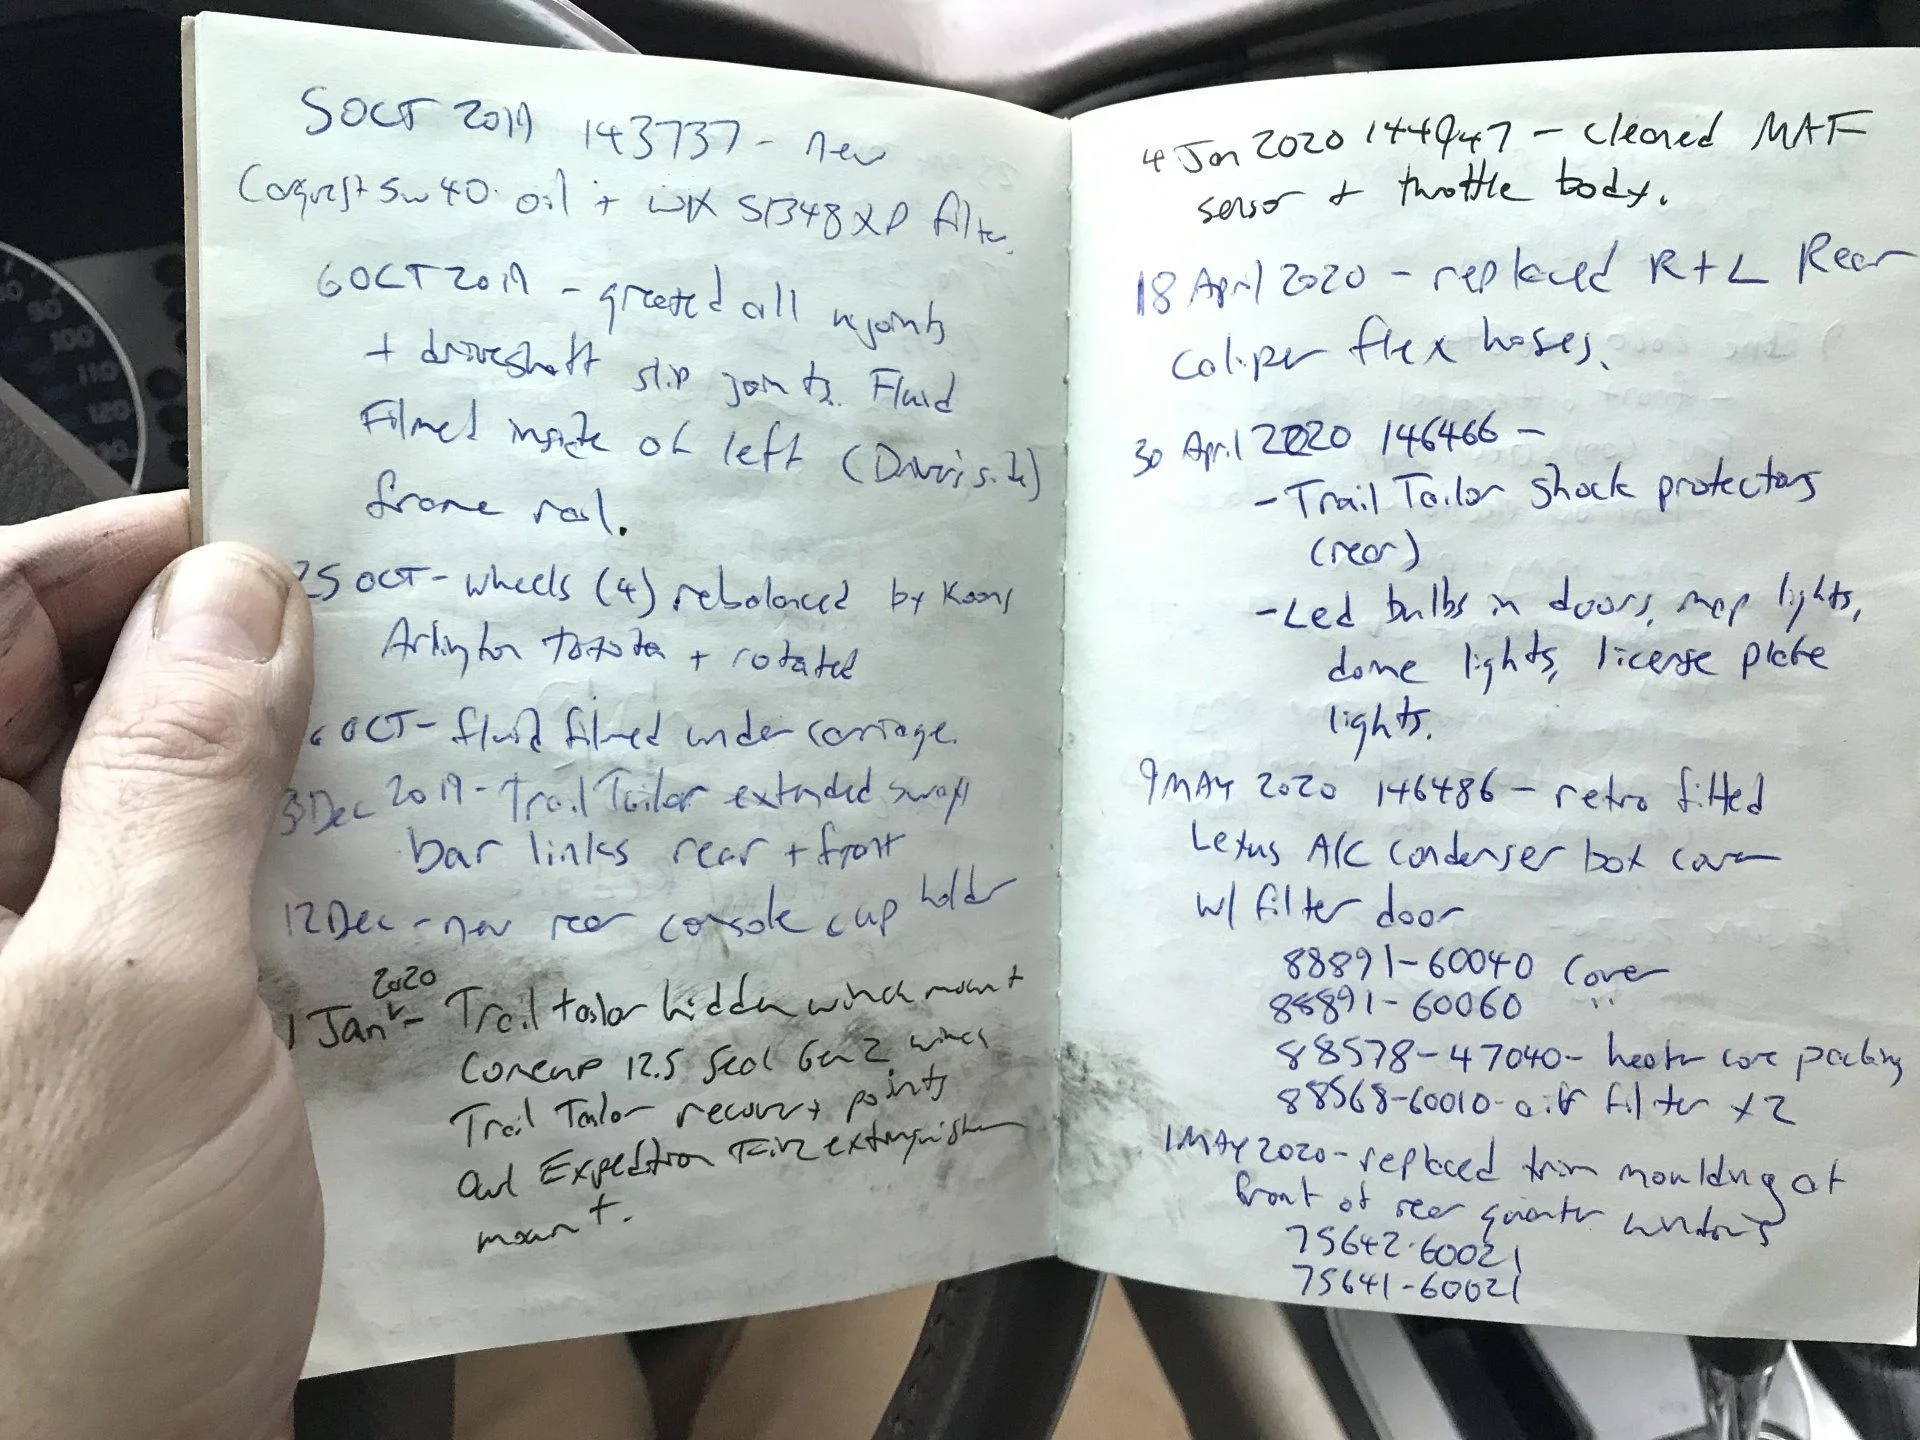 5 OCT 2019 143737 - new
5w40 oil + WIX 51348XP filter.
6 OCT 2019 - greased all ujoints
+ driveshaft slip joints. Fluid
Filmed inside of left (Driver's side)
frame rail.
25 OCT - wheels (4) rebalanced by Koons
Arlington Toyota + rotated
OCT - fluid filmed under carriage.
3 Dec 2019 - Trail Tailor extended sway
bar links rear + front
12 Dec - new rear console cup holder
1 Jan 2020 - Trail tailor hidden winch mount
Comeup 12.5 Seal Gen 2 winch
Trail Tailor recovery points
Owl Expedition Fire extinguisher
mount.
4 Jan 2020 - cleaned MAF
sensor + throttle body.
18 April 2020 - replaced R + L Rear
caliper flex hoses.
30 April 2020 146466 -
- Trail Tailor shock protectors
(rear)
- Led bulbs in doors, map lights,
dome lights, license plate
lights.
9 MAY 2020 146486 - retro fitted
Lexus A/C condenser box cover
w/ filter door
88891-60040 cover
88891-60060 "
88578-47040 - heater core packing
88568-60010 - air filter x 2
MAY 2020 - replaced trim moulding at
front of rear quarter windows
75642-60021
75641-60021